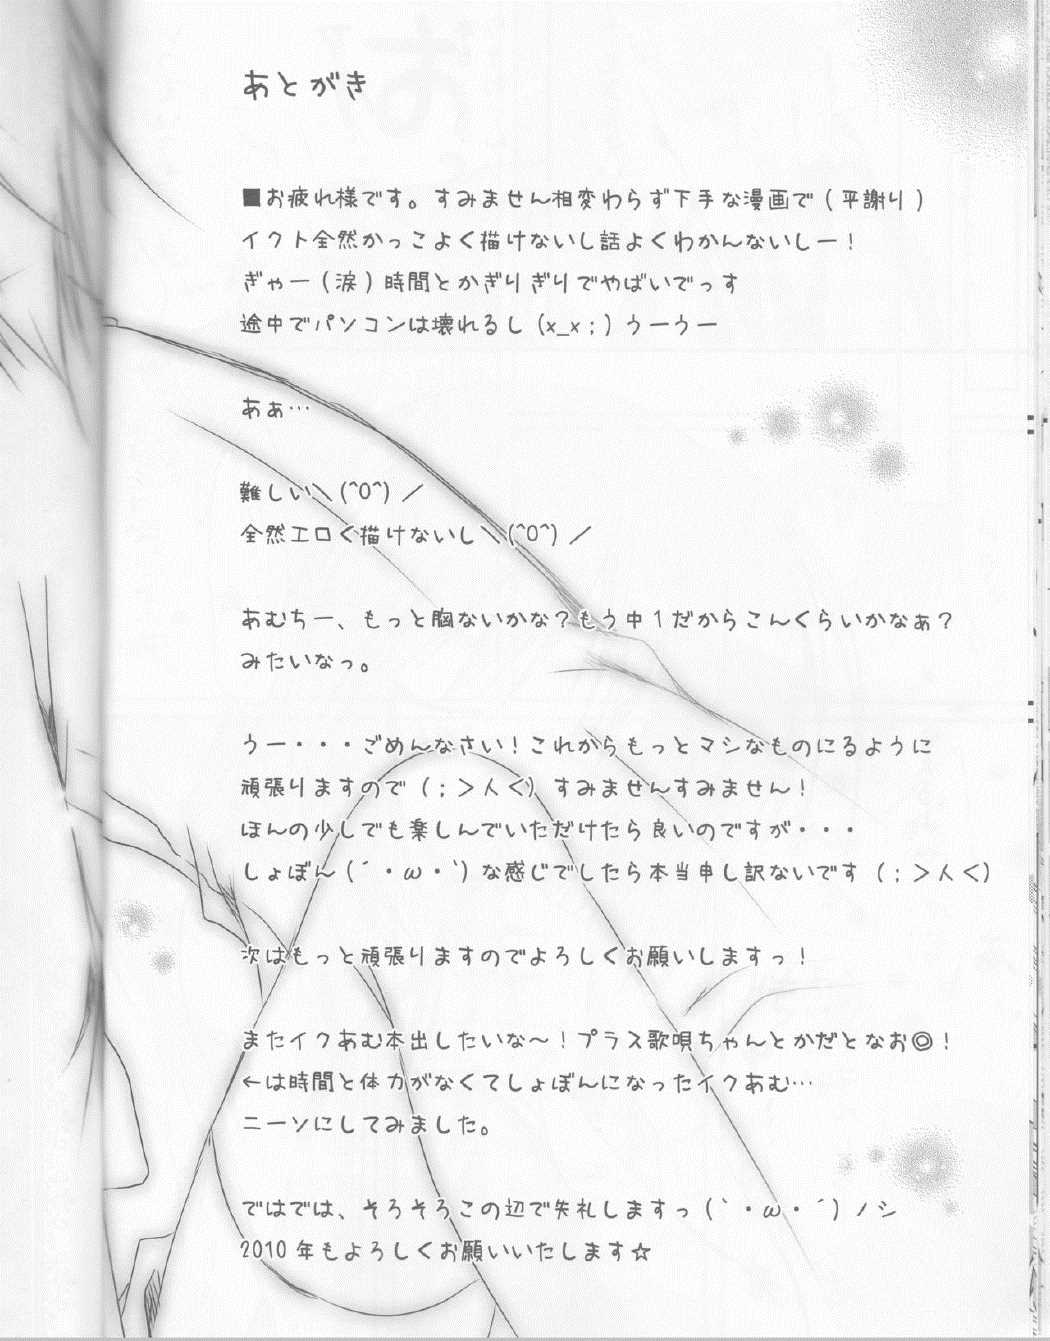 あとがき
■お疲れ様です。すみません相変わらず下手な漫画で(平謝り)
イクト全然かっこよく描けないし話よくわかんないしー!
ぎゃー(涙)時間とかぎりぎりでやばいでっす
途中でパソコンは壊れるし(x_x;)うーうー
あぁ…
難しい\(^O^)/
全然エロく描けないし\(^O^)/
あむちー、もっと胸ないかな?もう中1だからこんくらいかなぁ?
みたいなっ。
うー・・・ごめんなさい!これからもっとマシなものにるように
頑張りますので(;>人<)すみませんすみません!
ほんの少しでも楽しんでいただけたら良いのですが・・・
しょぼん(´・ω・`)な感じでしたら本当申し訳ないです(;>人<)
次はもっと頑張りますのでよろしくお願いしますっ!
またイクあむ本出したいな~!プラス歌唄ちゃんとかだとなお◎!
←は時間と体力がなくてしょぼんになったイクあむ…
ニーソにしてみました。
ではでは、そろそろこの辺で失礼しますっ(`・ω・´)ノシ
2010年もよろしくお願いいたします☆